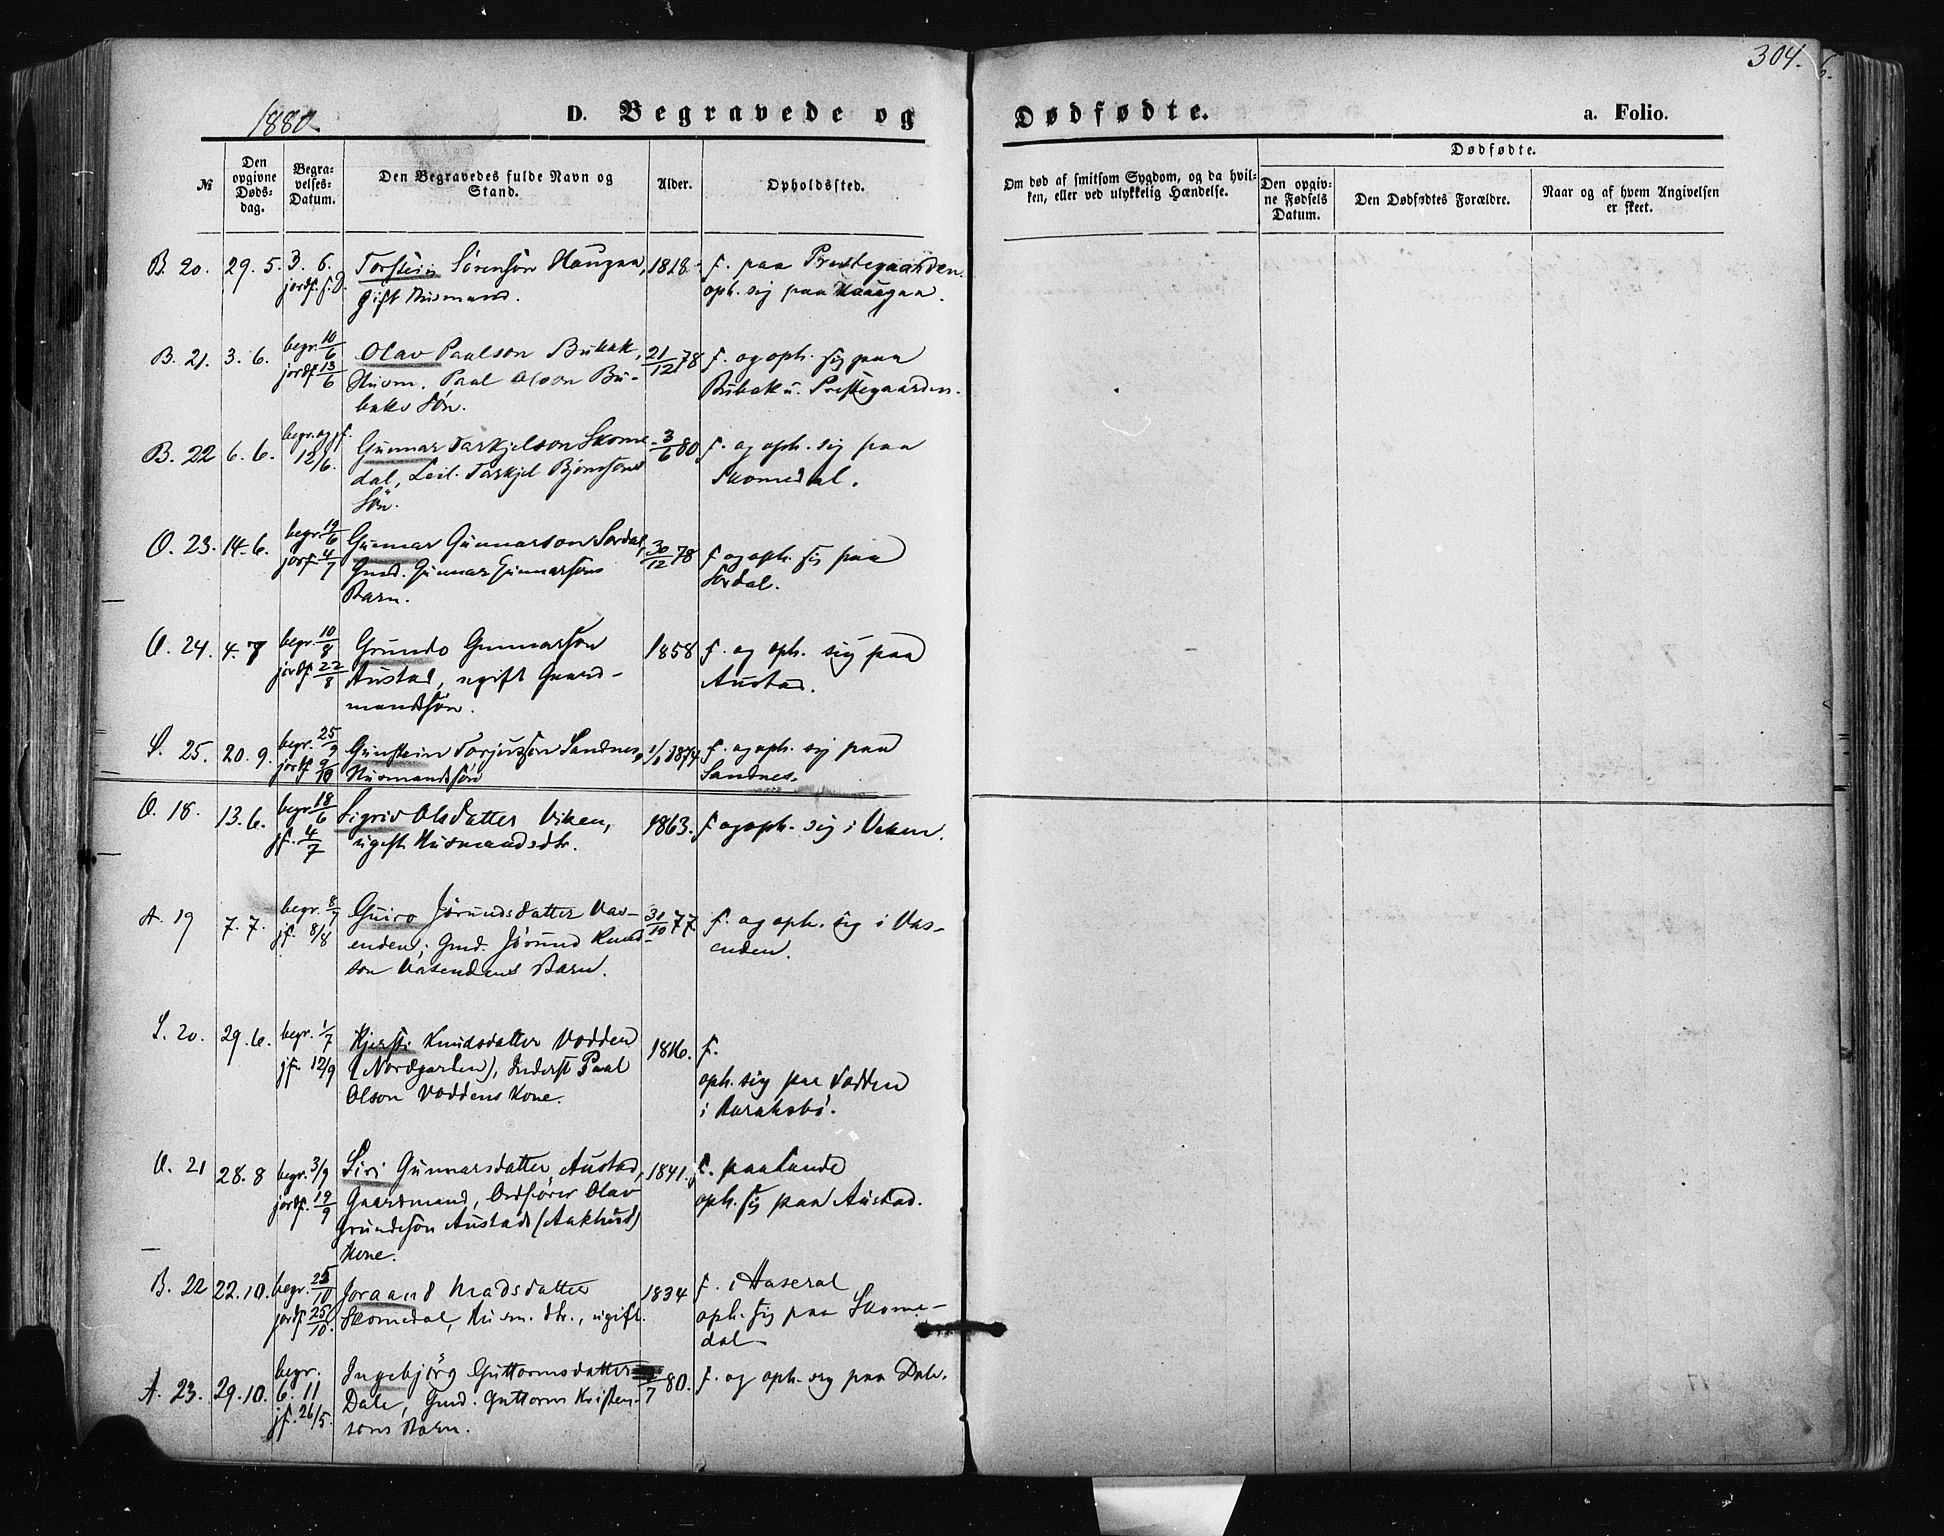 304.
1880.
D. Begravede og Dødfødte.
a. Folio.
№
Den opgivne Døds-dag.
Begra-velses-Datum.
Den Begravedes fulde Navn og Stand.
Alder.
Opholdssted.
Om død af smitsom Sygdom, og da hvil-ken, eller ved ulykkelig Hændelse.
Dødfødte.
Den opgiv-ne Fødsels Datum.
Den Dødfødtes Forældre.
Naar og af hvem Angivelsen er skeet.
B. 20. 29. 5. 3. 6. Torstein Sörensön Haugaa, 1818. f. paa Prestegaarden.
jordf. s. D. gift Husmand. oph. sig paa Haugaa.
B. 21. 3. 6. begr. 10/6 Olav Paalson Bubak, 21/12 78 f. og oph. sig paa
jordf. 13/6 Husm. Paal Olson Bu- Bubak u. Prestegaarden.
baks Sön.
B. 22 6. 6. begr. og jf. Gunnar Tarkjelson Skome- 3/6 80 f. og oph. sig paa
12/6. dal, Leil. Tarkjel Björnsons Skomedal.
Sön.
O. 23. 14. 6. begr. 19/6 Gunnar Gunnarson Sordal, 30/12 78 f. og oph. sig paa
jorf. 4/7 Gmd. Gunnar Gunnarsons Sordal.
Barn.
O. 24. 4. 7 begr. 10/8 Grundo Gunnarson 1858 f. og oph. sig paa
jordf. 22/8 Austad, ugift Gaard- Austad.
mandssön.
S. 25. 20. 9. begr. 25/9 Gunstein Torjusson Sandnes, 1/1 1874 f. og oph. sig paa
jordf. 9/10 Husmandssön Sandnes.
O. 18. 13. 6. begr. 18/6 Sigrid Olsdatter Viken, 1863. f. og oph. sig i Viken.
jf. 4/7 ugift Husmandsdtr.
A. 19 7. 7. begr. 8/7 Guro Jörundsdatter Vas- 31/10 77. f. og oph. sig i Vas-
jf. 8/8 enden, Gmd. Jörund Knud- enden.
son Vasendens Barn.
S. 20. 29. 6. begr. 1/7 Kjersti Knudsdatter Vodden 1816. f.
jf. 12/9 (Nordgarden), Inderst Paal oph. sig paa Vodden
Olson Voddens Kone. i
O. 21 28. 8 begr. 3/9 Siri Gunnarsdatter Austad, 1841. f. paa Lunde
jordf. 19/9 Gaardmand, Ordförer Olav oph. sig paa Austad.
Grundesön Austads (Aakhus)
Kone.
B. 22 22. 10. begr. 25/10 Joraand Madsdatter 1834 f. i Aaseral
jordf. 25/10. Skomedal, Husm. dtr., ugift. oph. sig paa Skome-
dal
A. 23. 29. 10. begr. Ingebjörg Guttormsdatter /7 80. f. og oph. sig paa Dale.
6. 11 Dale, Gmd. Guttorm Kristen-
jf. 26/5. sons Barn.